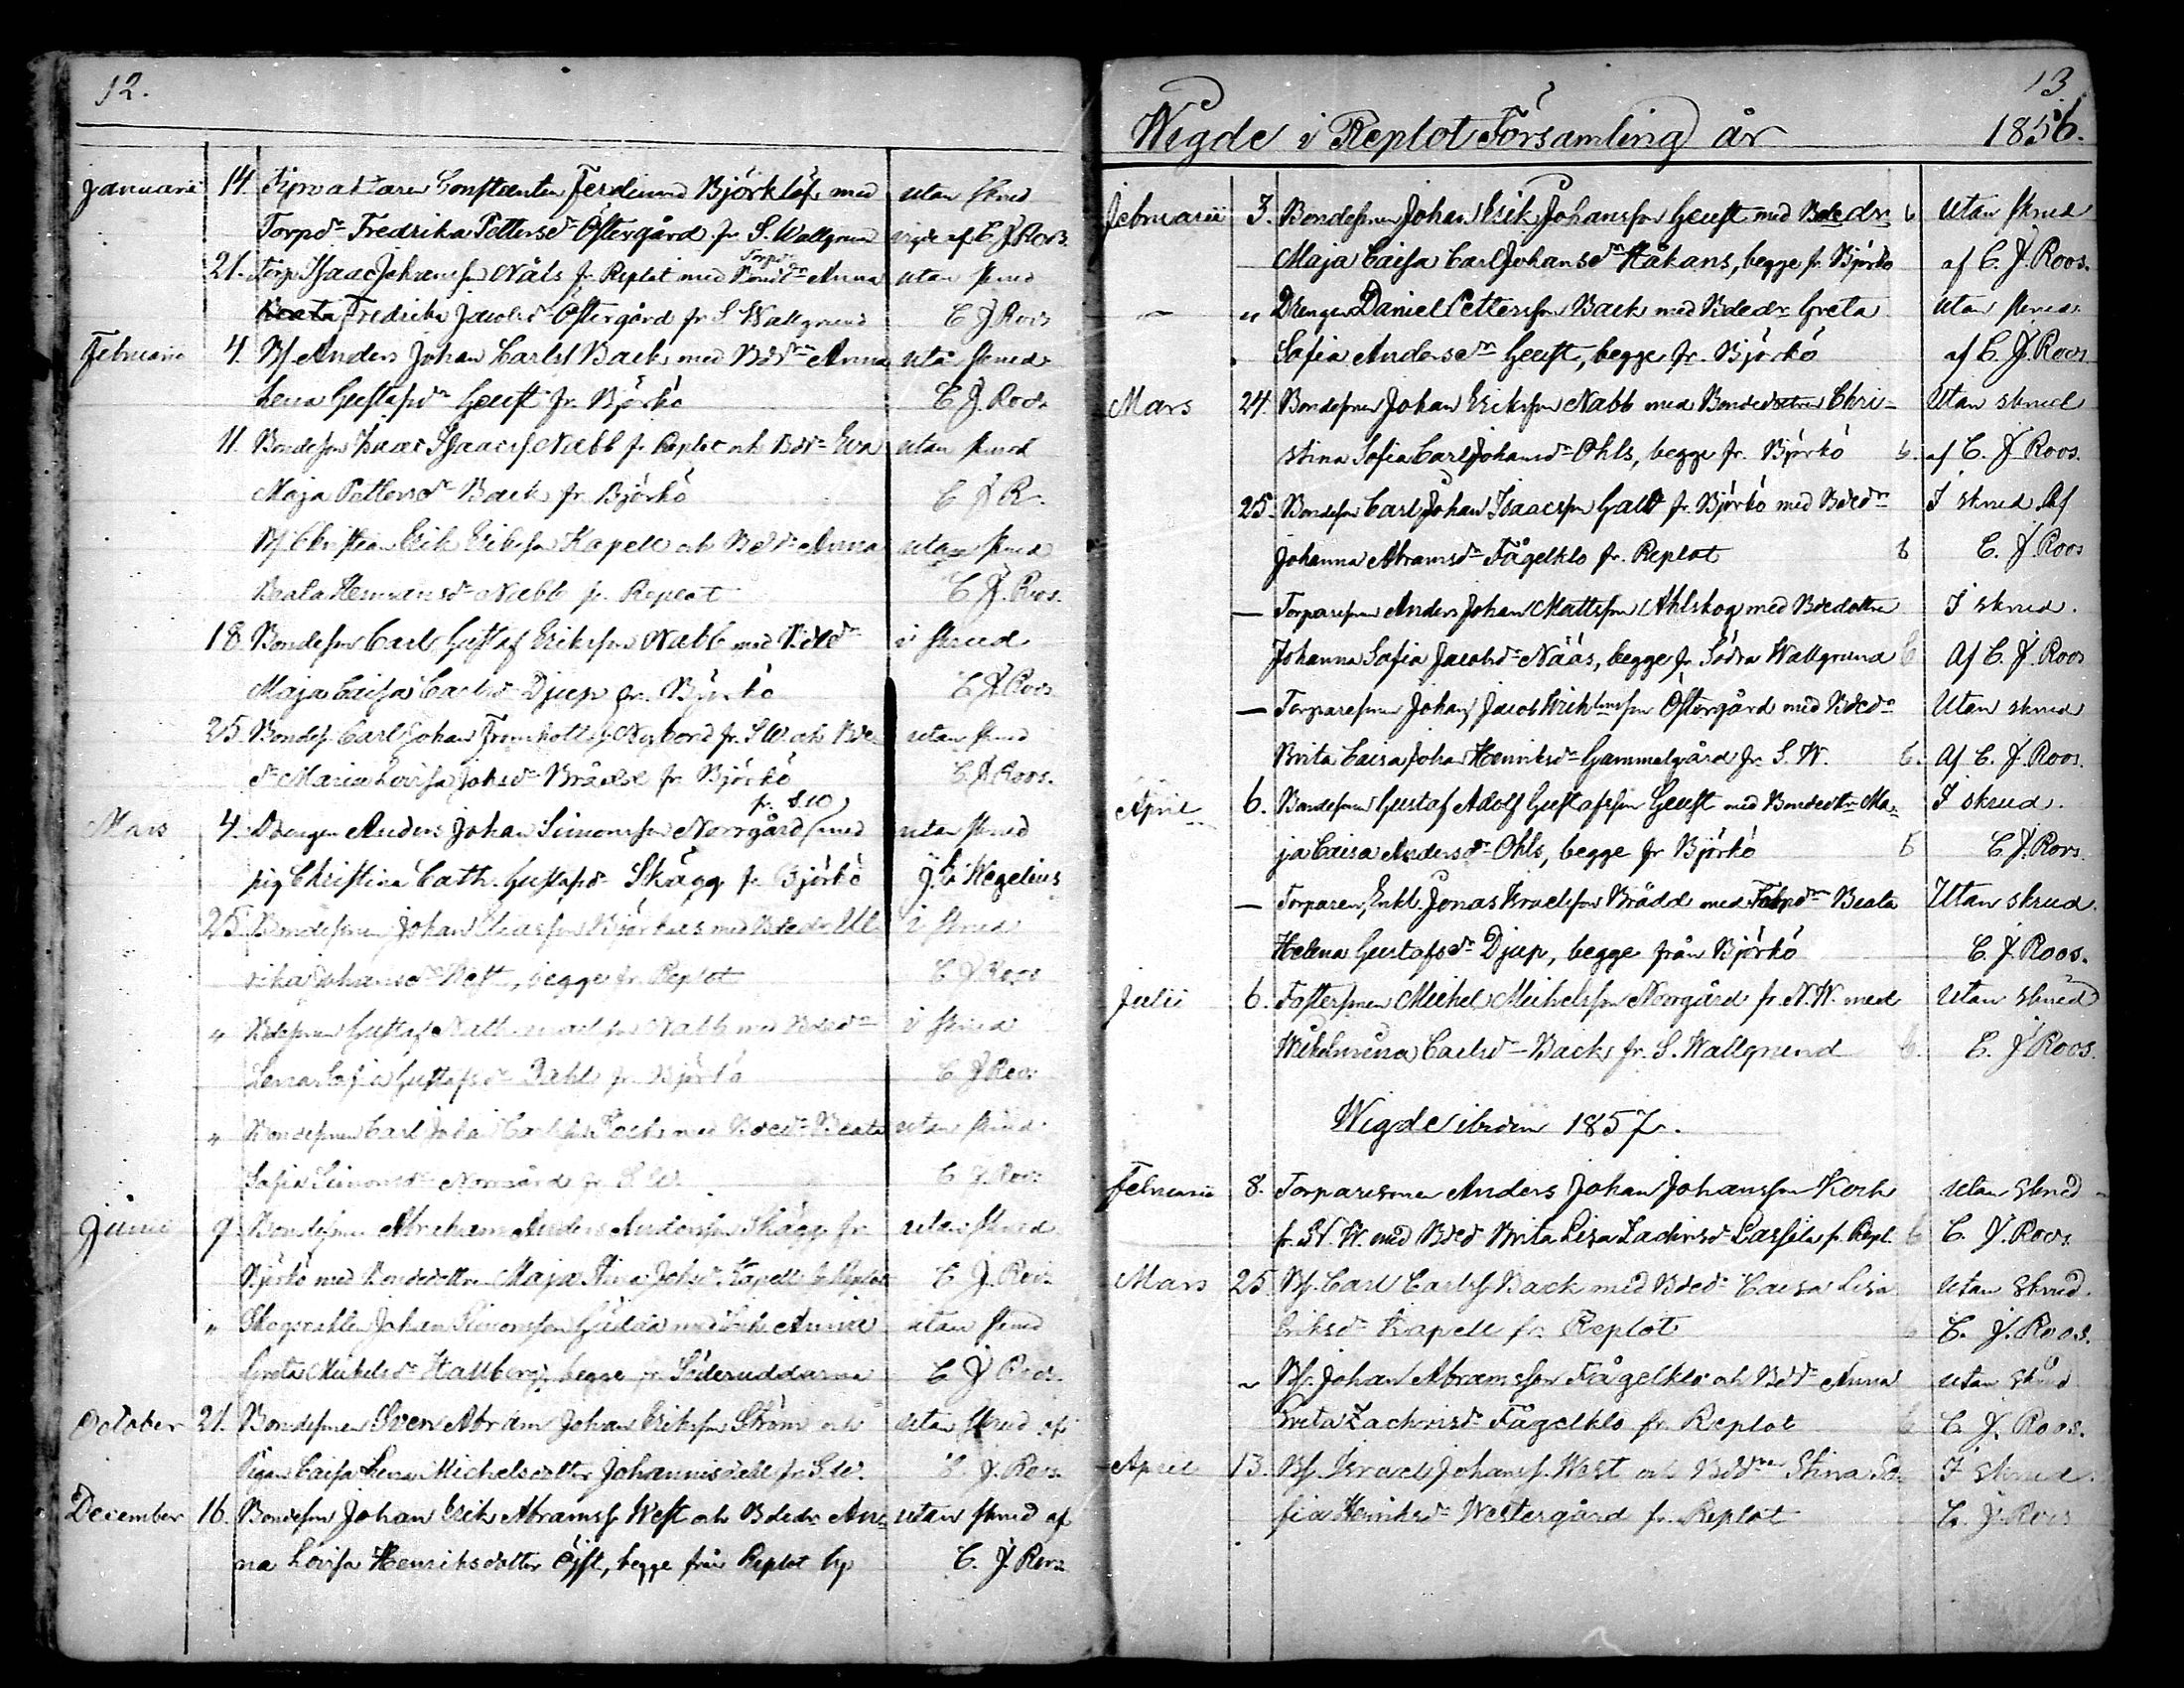 12.
Januarii 14. Constantin Ferdinand Björklöf med utan skrud
Torpdr Fredrika Pettersdr Östergård fr S. Wallgrund vigde af C. J. Roos
21. Torp Isaac Johansson Nåls fr Replot med Torpdr Anna utan skrud
Fredrika Jacobsdr Östergård fr S Wallgrund C J Roos
Februarii 4. Bs Anders Johan Carlss Back med Bdr Anna utan skrud
Lena Gustafsdr Geust fr Björkö C J. Roos
11. Bondeson Isaac Isaacss Nabb fr Replot och Bdr Eva utan skrud
Maja Pettersdr Back fr Björkö C J R.
Bs Christian Erik Eriksson Kapell och Bdr Anna utan skrud
Beata Hermansdr Nabb fr. Replot C J. Roos.
18. Bondeson Carl Gustaf Eriksson Nabb med Bdedr i skrud
Maja Caisa Carlsdr Djup fr. Björkö C J Roos
25. Bondes. Carl Johan Nybord fr. S W. och Bde- utan skrud
dr Maria Lovisa Johsdr Brädd fr Björkö C J Roos.
fr. S. W
Mars 4. Drengen Anders Johan Simonsson Norrgård med utan skrud
pig Christina Cath. Gustafsdr Skägg fr Björkö J. C. Hegelius
25. Bondesonen Johan Eliasson Björkas med Bdedr Ul- i skrud
rika Johansdr West, begge fr. Replot C J Roos
" Bdesonen Gustaf Nabb med Bdedr i skrud
Lena Sofia Gustafsdr Dahl fr Björkö C J Roos
" Bondesonen Carl Johan Carlsson Back med Bdedr Beata utan skrud
Sofia Simonsdr Norrgård fr S. W. C J. Roos
Junii 9. Bondesonen Abraham Anders Andersson Skägg fr utan skrud
Björkö med Bondedottren Maja Stina Johsdr Kapell fr Replot C J. Roos
" Johan Simonsson med Enk. Anna utan skrud
Greta Mickelsdr Hallberg, begge fr Söderuddarna C J Roos
October 21. Bondesonen Sven Abram Johan Eriksson Ström och utan skrud af
Pigan Caisa Lena Michelsdotter fr S. W. C. J. Roos
December 16. Bondeson Johan Erik Abramss West och Bdedr An- utan skrud af
na Lovisa Henriksdotter Öjst, begge från Replot by C. J. Roos
13
Wigde i Replot Församling år 1856.
Februarii 3. Bondesonen Johan Erik Johansson Geust med Bdedr 6 Utan skrud
Maja Caisa Carl Johansdr Håkans, begge fr. Björkö af C. J. Roos.
— " Drengen Daniel Pettersson Back med Bdedr Greta Utan skrud
Sofia Andersdr Geust, begge fr. Björkö af C. J. Roos
Mars 24. Bondesonen Johan Eriksson Nabb med Bondedottren Chri- Utan skrud
stina Sofia Carl Johansdr Ohls, begge fr. Björkö 6. af C. J Roos.
25. Bondeson Carl Johan Isaacsson Galt fr. Björkö med Bdedr I skrud Af
Johanna Abramsdr Fågelklo fr. Replot 6 C. J. Roos
— Torparesonen Anders Johan Mattsson Ahlskog med Bdedottren I skrud.
Johanna Sofia Jacobsdr Nääs, begge fr Södra Wallgrund 6 Af C. J. Roos
— Torparesonen Johan Jacob Östergård med Bdedr Utan skrud
Brita Caisa Johan Henriksdr Gammelgård fr. S. W. 6. Af C. J. Roos.
April 6. Bondesonen Gustaf Adolf Gustafsson Geust med Bondedottr Ma- I skrud.
ja Caisa Andersdr Ohls, begge fr Björkö 6 C J. Roos.
— Torparen, Enkl. Jonas Israelsson Brädd med Torpdr Beata Utan skrud.
Helena Gustafsdr Djup, begge från Björkö C. J. Roos.
Julii 6. Fostersonen Michel Michelsson Norrgård fr. N. W. med Utan skrud
Wilhelmina Carlsdr Back fr. S. Wallgrund 6. C. J Roos.
Wigde ibidem 1857.
Februarii 8. Torparesonen Anders Johan Johansson Koch utan skrud
fr. N. W. med Bded Brita Lisa Zachrisdr Lassila fr. Repl. 6 C. J. Roos
Mars 25 Bs. Carl Carlss Back med Bdedr Caisa Lisa utan skrud.
Eriksdr Kapell fr. Replot 6 C. J. Roos.
~ Bs. Johan Abramsson Fågelklo och Bdr Anna utan skrud
Greta Zachrisdr Fågelklo fr. Replot 6 C. J. Roos.
April 13. Bs. Israel Johanss. West och Bddr Stina So- I skrud.
fia Henriksdr Westergård fr. Replot C. J. Roos